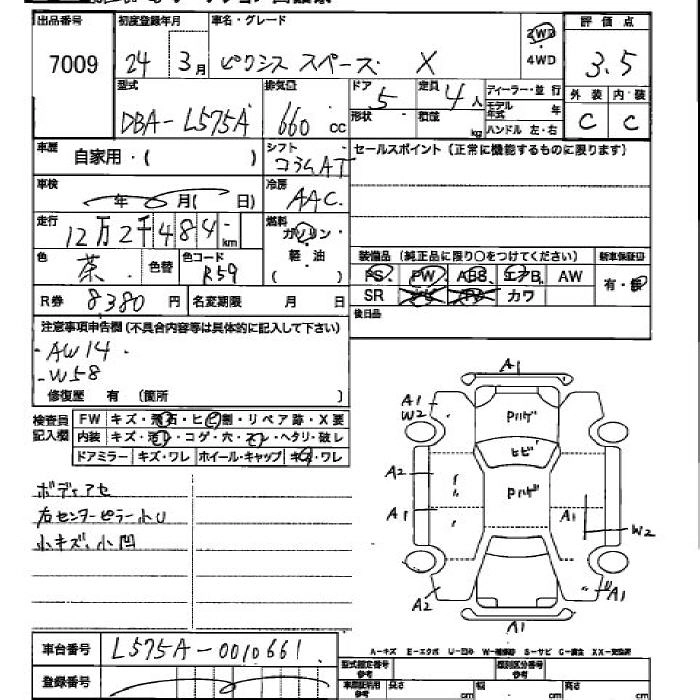 出品番号
7009
初度登録年月
24年 3月
車名・グレード
ピクシス スペース X
2WD
4WD
評価点
3.5
型式
DBA-L575A
排気量
660 cc
ドア
5
定員
4人
形状
積載
kg
ディーラー・並行
モデル年式 年
ハンドル 左・右
外装 内・装
C C
車歴
自家用・( )
シフト
コラムAT
セールスポイント (正常に機能するものに限ります)
車検
年 月( 日)
冷房
AAC
走行
12万2千484- km
燃料
ガソリン・
軽・油
( )
色
茶
色替
色コード
R59
装備品 (純正品に限り○をつけてください)
新車保証書
PS PW ABS エアB AW
有・無
SR ナビ TV カワ
R券 8,380 円
名変期限 月 日
後日品
注意事項申告欄 (不具合内容等は具体的に記入して下さい)
・AW14・
・W58
修復歴 有 (箇所 )
検査員記入欄
FW キズ・飛石・ヒビ割・リペア跡・X要
内装 キズ・汚レ・コゲ・穴・・ヘタリ・破レ
ドアミラー キズ・ワレ ホイール・キャップ キズ・ワレ
ボディアセ
右センターピラー小U
小キズ、小凹
A1
A1
W2
Pハゲ
ヒビ
A2
A1
Pハゲ
A1
W2
A2
A1
A1
車台番号
L575A-0010661
A-キズ E-エクボ U-凹み W-補修跡 S-サビ C-腐食 XX-交換済
登録番号
型式指定番号
参考
類別区分番号
参考
長さ cm
幅 cm
高さ cm